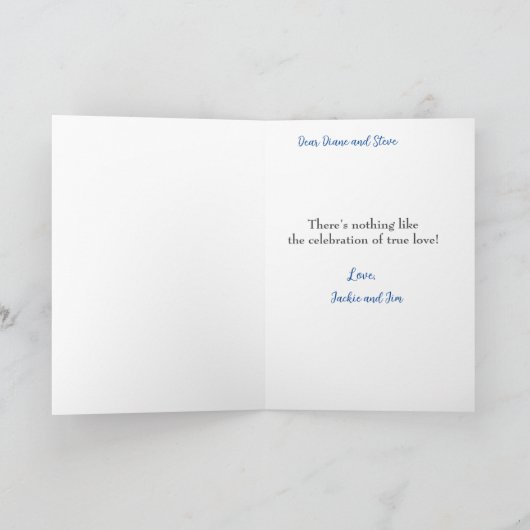 Dear Diane and Steve
There's nothing like
the celebration of true love!
Love,
Jackie and Jim